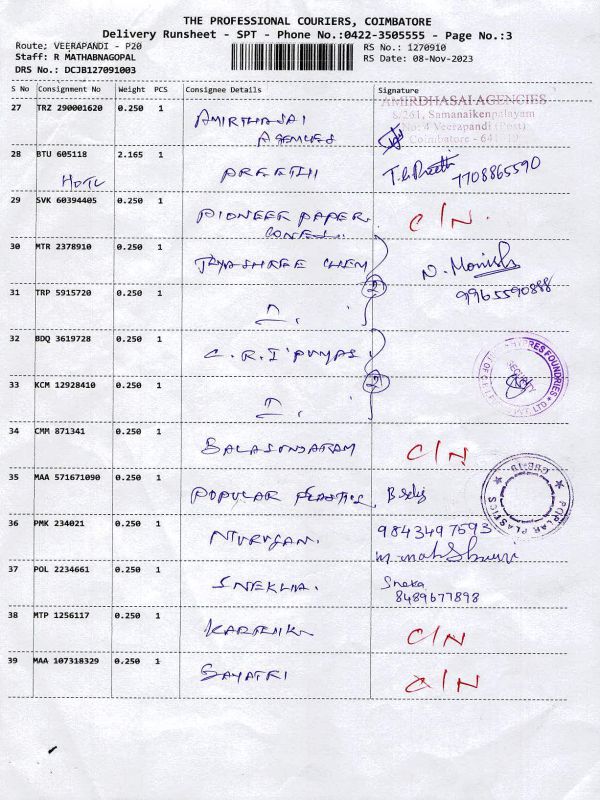 THE PROFESSIONAL COURIERS, COIMBATORE
Delivery Runsheet - SPT - Phone No.:0422-3505555 - Page No.:3
Route; VEERAPANDI - P20
RS No.: 1270910
Staff: R MATHABNAGOPAL
RS Date: 08-Nov-2023
DRS No.: DCJB127091003
S No Consignment No Weight PCS Consignee Details Signature
27 TRZ 290001620 0.250 1 AMIRTHASAI
AGENCIES
AMIRDHASAI AGENCIES
8/261, Samanaikenpalayam
No: 4 Veerapandi (Post)
Coimbatore - 641 019
28 BTU 605118 2.165 1 PREETHI T.R Preethi 7708865590
HOTL
29 SVK 60394405 0.250 1 PIONEER PAPER C/N.
CONES..
30 MTR 2378910 0.250 1 JEYASHREE CHEM N. Monish
9965590888
2
31 TRP 5915720 0.250 1
32 BDQ 3619728 0.250 1 C.R.I PUMPS
SECURITY
2
33 KCM 12928410 0.250 1
34 CMM 871341 0.250 1 BALASUNDARAM C/N
35 MAA 571671090 0.250 1 POPULAR PLASTICS,
POPULAR PLASTICS
36 PMK 234021 0.250 1 MURUGAN. 9843497593
37 POL 2234661 0.250 1 SNEKHA. Sneka
8489677898
38 MTP 1256117 0.250 1 KARTHIK C/N
39 MAA 107318329 0.250 1 GAYATRI C/N